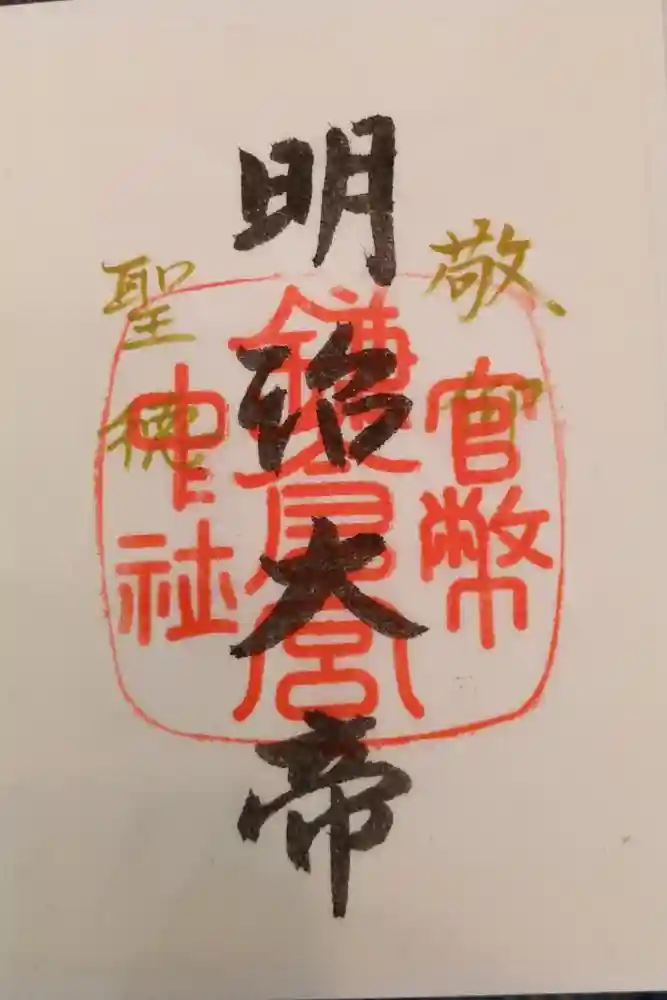 敬
明治大帝
聖徳
官幣
鎌倉宮
中社